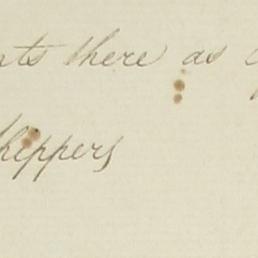 nts there as
hippers